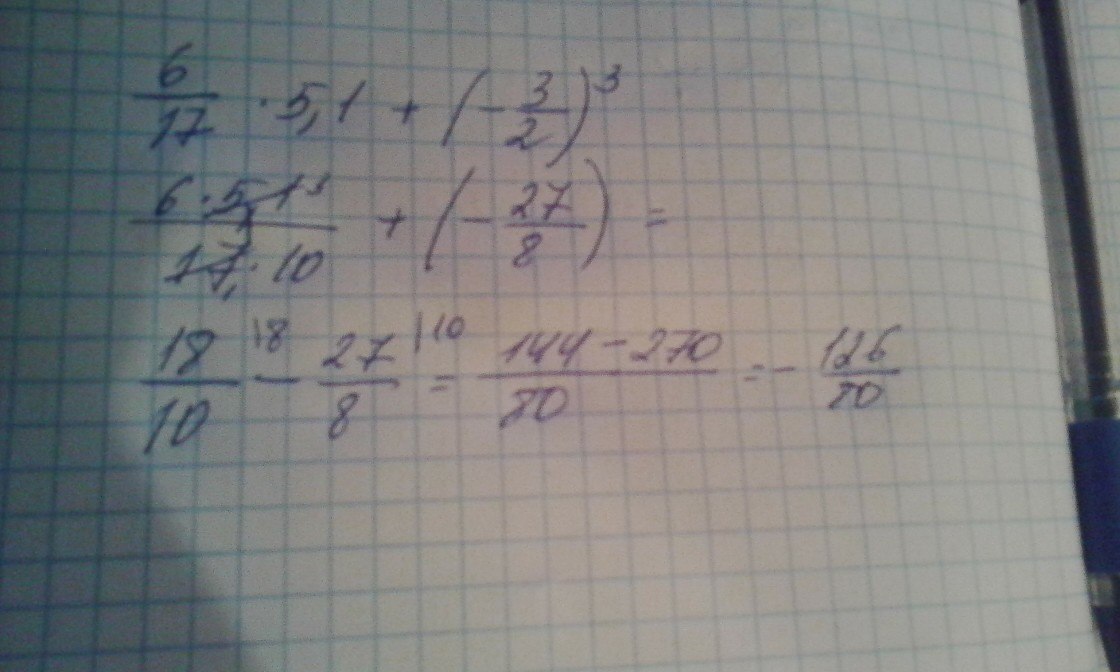 6/17 · 5,1 + (-3/2)³
6·51³/17₁·10 + (-27/8) =
18/10 |8 - 27/8 |10 = 144-270/80 = - 126/80